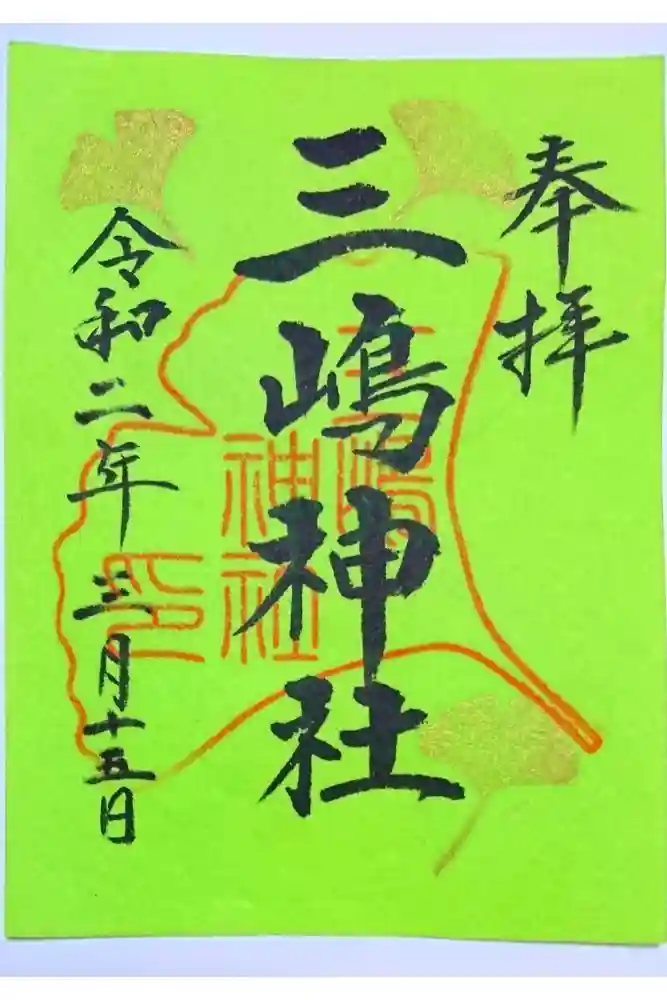 奉拝
三嶋神社
令和二年三月十五日
三嶋
神社
印